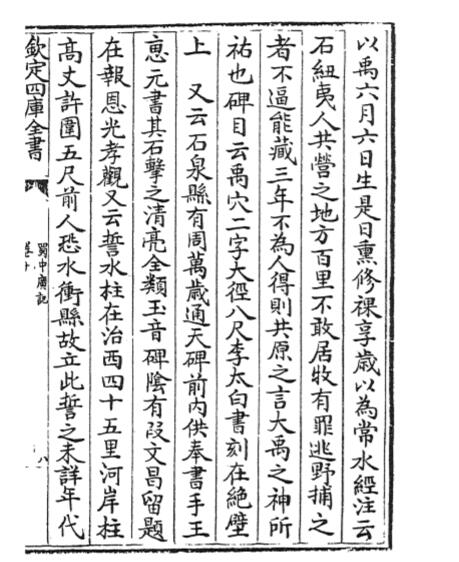 以禹六月六日生是日熏修祼享歲以為常水經注云
石紐夷人共營之地方百里不敢居牧有罪逃野捕之
者不逼能藏三年不為人得則共原之言大禹之神所
祐也碑目云禹穴二字大徑八尺李太白書刻在絶壁
上　又云石泉縣有周萬歲通天碑前内供奉書手王
惪元書其石擊之清亮全類玉音碑陰有段文昌留題
在報恩光孝觀又云誓水柱在治西四十五里河岸柱
高丈許圍五尺前人恐水衝縣故立此誓之未詳年代
欽定四庫全書
蜀中廣記
卷十
八